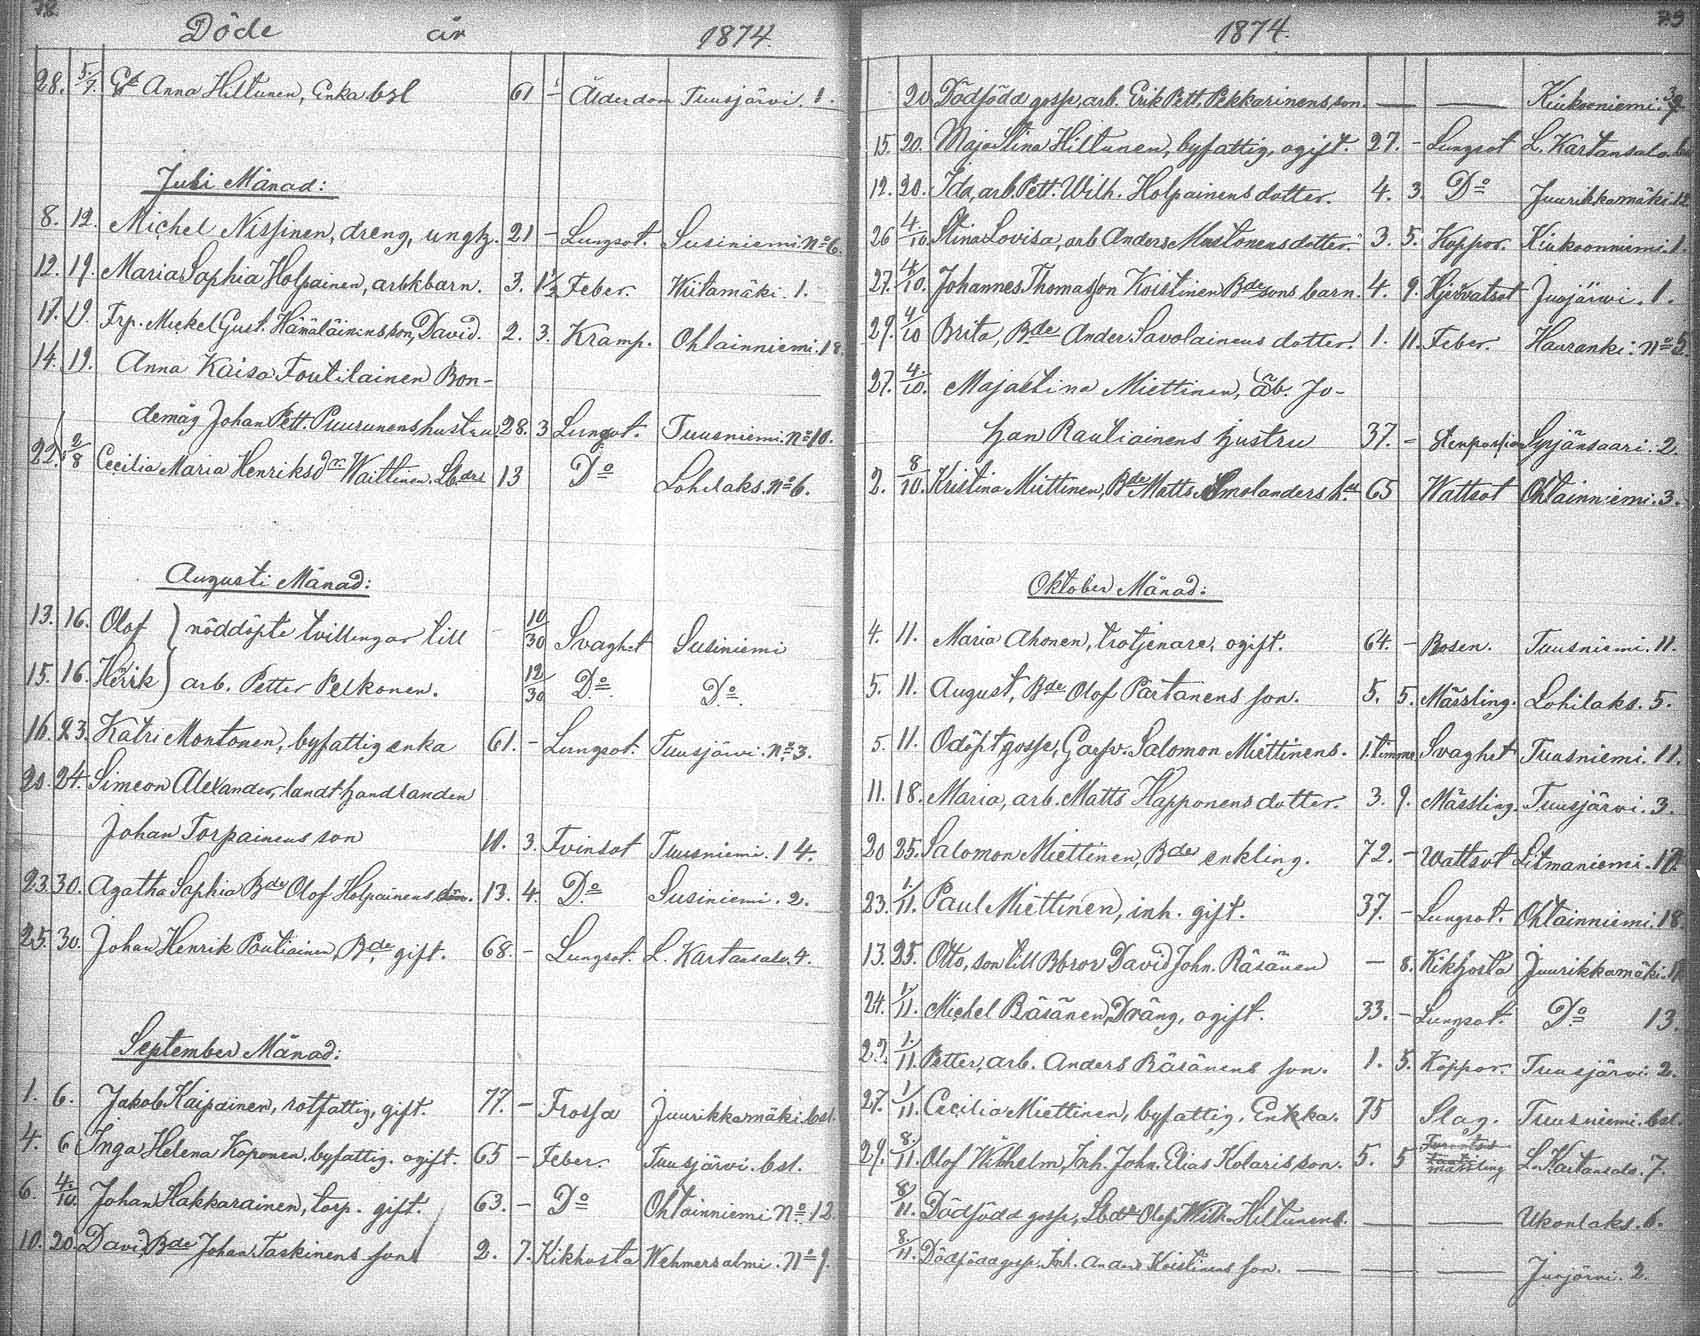 72.
Döde år 1874.
28. 5/7. Anna Hiltunen, Enka bsl 61 – Ålderdom Tuusjärvi. 1.
Juli Månad:
8. 12. Michel Nissinen, dreng, ungk. 21 – Lungsot. Susiniemi No 6.
12. 19. Maria Sophia Holpainen, arbkbarn. 3. 1 1/2 Feber. Wiitamäki. 1.
17. 19. Frp. Mickel Gust. Hämäläinens son, David. 2. 3. Kramp. Ohtainniemi. 18.
14. 19. Anna Kaisa Toutilainen Bon-
demåg Johan Pett. Puurunens hustru 28. 3 Lungot. Tuusniemi. No 10.
22. 2/8 Cecilia Maria Henriksdr Waittinen. 13 Do Lohilaks. No 6.
Augusti Månad:
13. 16. Olof } nöddöpte tvillingar till 10/30 Svaghet Susiniemi
15. 16. Henrik } arb. Petter Pelkonen. 12/30 Do Do
16. 23. Katri Montonen, byfattig enka 61. – Lungsot. Tuusjärvi. No 3.
20. 24. Simeon Alexander, landthandlanden
Johan Torpainens son 10. 3. Tvinsot Tuusniemi. 14.
23. 30. Agatha Sophia Bde Olof Holpainens 13. 4. Do Susiniemi. 2.
25. 30. Johan Henrik Poutiainen, Bde, gift. 68. – Lungsot. L. Kartansalo. 4.
September Månad:
1. 6. Jakob Kaipainen, rotfattig, gift. 77. – Frossa Juurikkamäki. bsl.
4. 6 Inga Helena Koponen, byfattig. ogift. 65 – Feber. Tuusjärvi. bsl.
6. 4/10. Johan Hakkarainen, torp. gift. 63. – Do Ohtainniemi No 12.
10. 20. David, Bde Johan Taskinens son 2. 7. Kikhosta Wehmersalmi. No 9.
1874. 73
20. Dödfödd gosse, arb. Erik Pett. Pekkarinens son. — — Kiukooniemi.
15. 20. Maja Stina Hiltunen, byfattig, ogift. 27. – Lungsot L. Kartansalo.
12. 20. Ida, arb. Pett. Wilh. Holpainens dotter. 4. 3. Do Juurikkamäki. 12
26 4/10. Stina Lovisa, arb Anders Mustonens dotter. 3. 5. Koppor. Kiukoonniemi. 1.
27. 4/10. Johannes Thomasson Koistinen Bdesons barn. 4. 9. Juojärvi. 1.
29. 4/10 Brita, Bde Ander Savolainens dotter. 1. 11. Feber. Hauranki. No 5.
27. 4/10. Maja Stina Miettinen, åb. Jo-
han Rautiainens hustru 37. – Syrjänsaari. 2.
2. 8/10. Kristina Miettinen, Bde Matts Smolanders h. 65 Wattsot Ohtainniemi. 3.
Oktober Månad:
4. 11. Maria Ahonen, trotjenare, ogift. 64. – Rosen. Tuusniemi. 11.
5. 11. August, Bde Olof Partanens son. 5. 5. Mässling. Lohilaks. 5.
5. 11. Odöpt gosse, Salomon Miettinens. 1. timme Svaghet Tuusniemi. 11.
11. 18. Maria, arb. Matts Happonens dotter. 3. 9. Mässling. Tuusjärvi. 3.
20 25. Salomon Miettinen, Bde enkling. 72. – Wattsot Litmaniemi. 17.
23. 1/11. Paul Miettinen, inh. gift. 37. – Lungsot. Ohtainniemi 18.
13. 25. Otto, son till Bbror David John. Räsänen – 8. Kikhosta Juurikkamäki.
24. 1/11. Michel Räsänen, Dräng, ogift. 33. – Lungsot. Do 13.
22. 1/11. Petter, arb. Anders Räsänens son. 1. 5. Koppor. Tuusjärvi. 2.
27. 1/11. Cecilia Miettinen, byfattig, Enkka. 75 Slag. Tuusniemi. bsl.
29. 8/11. Olof Wilhelm, Inh. John. Elias Kolaris son. 5. 5 mässling L. Kartansalo. 7.
8/11. Dödfödd gosse, Olof Wilh. Hiltunens. — — Ukonlaks. 6.
8/11. Dödföda gosse. Inh. Anders Koistinens son. — — — Juojärvi. 2.